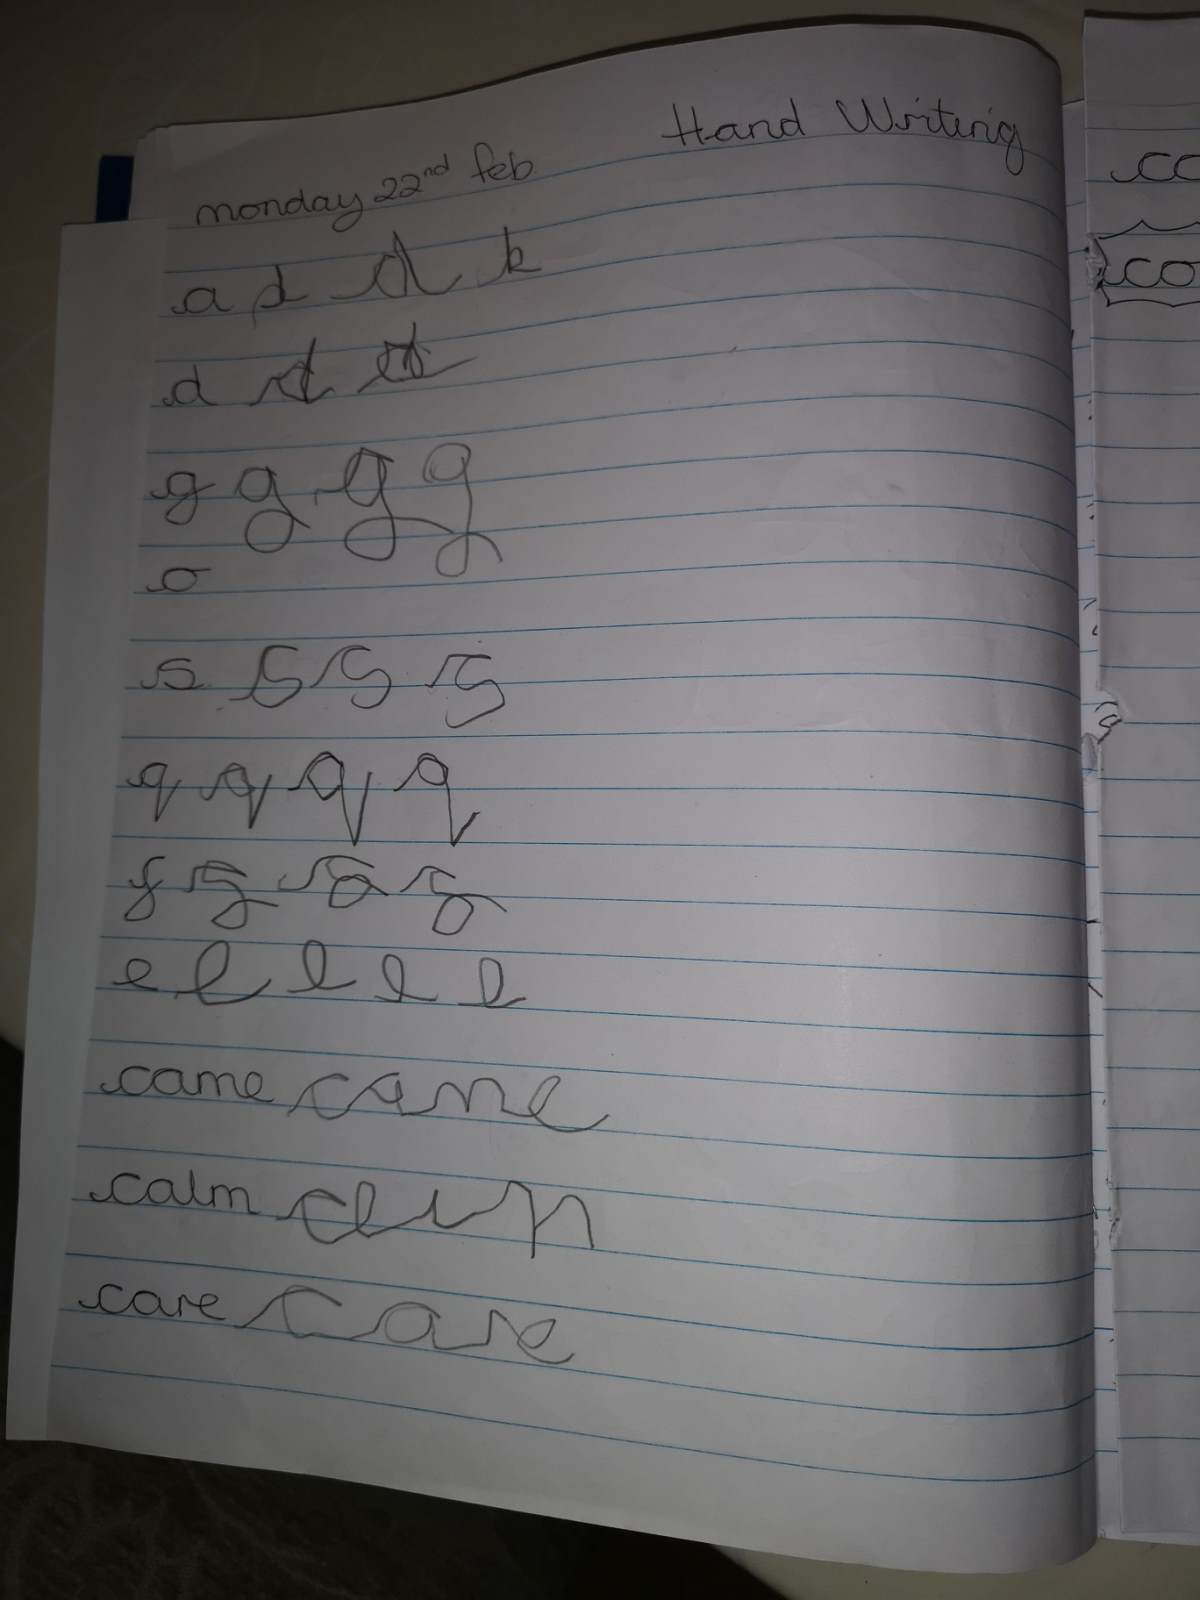 Hand Writing
monday 22nd feb
a d d k
d d d
g g g g
o
s s s s
q q q q
f
e e e e e
came came
calm
care care
co
co